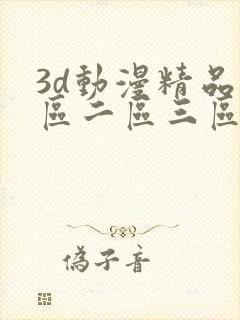 3d動漫精品
區二區三區
偽子音